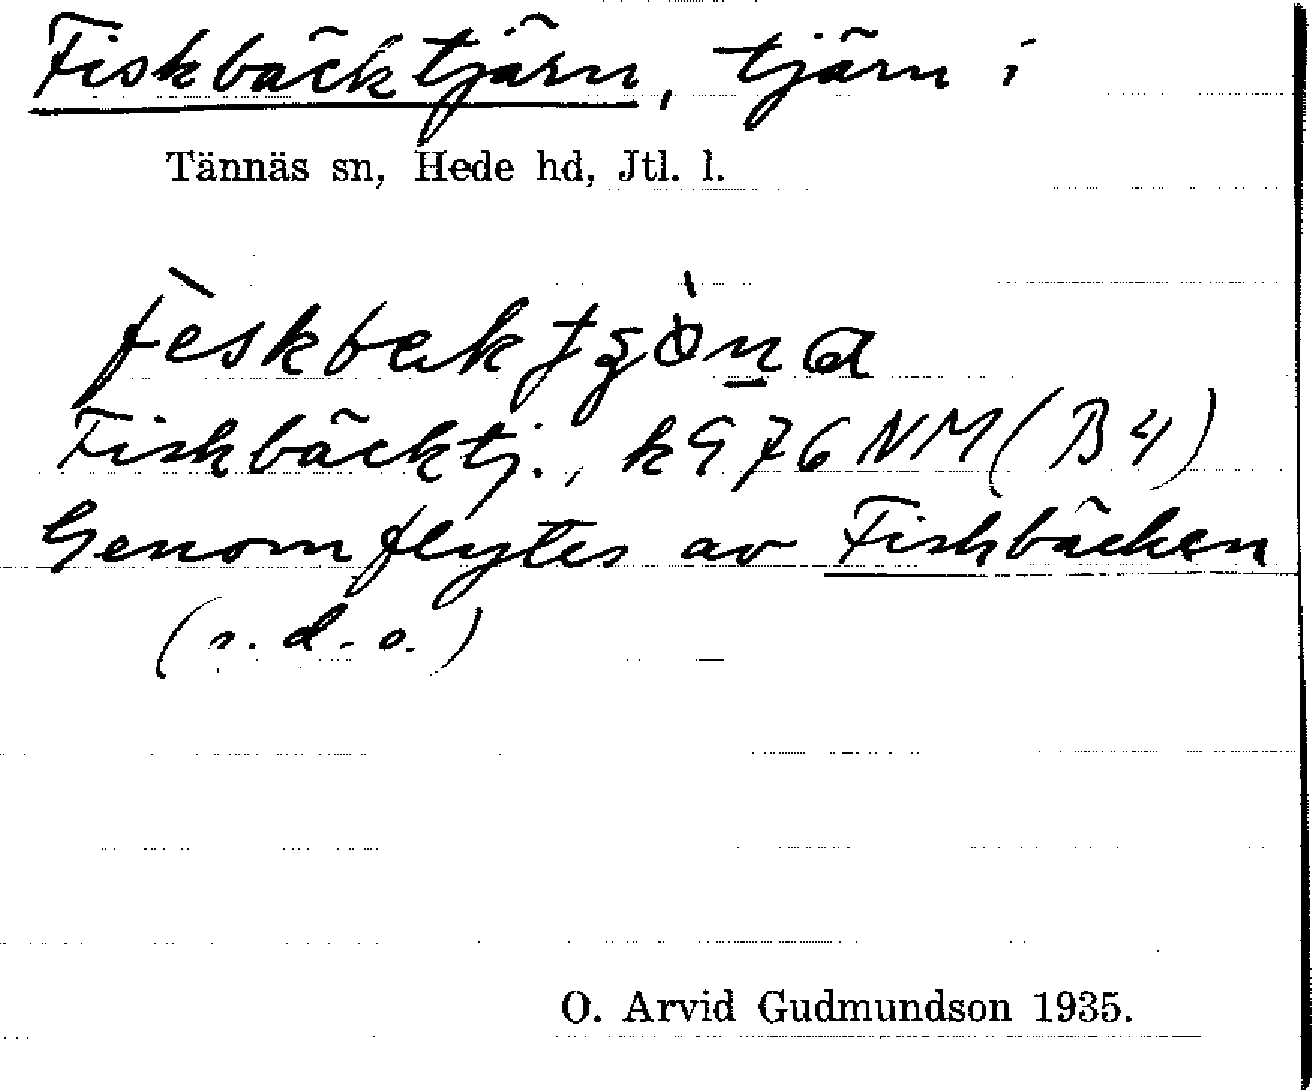 Fiskbäcktjärn, tjärn i
Tännäs sn, Hede hd, Jtl. l.
Fiskbäcktj., k 976 NM (B4)
Genomflytes av Fiskbäcken
(s. d. o.)
O. Arvid Gudmundson 1935.